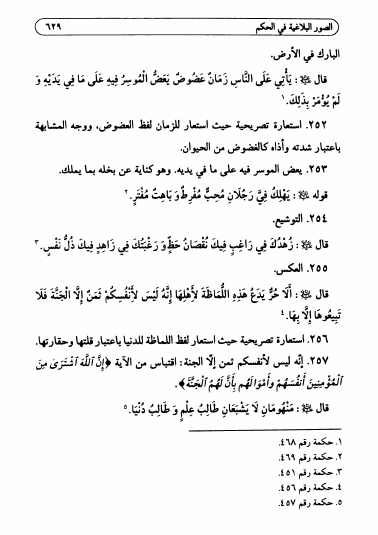 الصور البلاغية في الحكم ٦٢٩
البارك في الأرض.
قال ﷺ: يَأْتِي عَلَى النَّاسِ زَمَانٌ عَضُوضٌ يَعَضُّ الْمُوسِرُ فِيهِ عَلَى مَا فِي يَدَيْهِ وَ
لَمْ يُؤْمَرْ بِذَلِكَ.١
٢٥٢. استعارة تصريحية حيث استعار للزمان لفظ العضوض، ووجه المشابهة
باعتبار شدته وأذاه كالعضوض من الحيوان.
٢٥٣. يعض الموسر فيه على ما في يديه. وهو كناية عن بخله بما يملك.
قوله ﷺ: يَهْلِكُ فِيَّ رَجُلَانِ مُحِبٌّ مُفْرِطٌ وَ بَاهِتٌ مُفْتَرٍ.٢
٢٥٤. التوشيع.
قال ﷺ: زُهْدُكَ فِي رَاغِبٍ فِيكَ نُقْصَانُ حَظٍّ وَ رَغْبَتُكَ فِي زَاهِدٍ فِيكَ ذُلُّ نَفْسٍ.٣
٢٥٥. العكس.
قال ﷺ: أَلَا حُرٌّ يَدَعُ هَذِهِ اللُّمَاظَةَ لِأَهْلِهَا إِنَّهُ لَيْسَ لِأَنْفُسِكُمْ ثَمَنٌ إِلَّا الْجَنَّةَ فَلَا
تَبِيعُوهَا إِلَّا بِهَا.٤
٢٥٦. استعارة تصريحية حيث استعار لفظ اللماظة للدنيا باعتبار قلتها وحقارتها.
٢٥٧. إنّه ليس لأنفسكم ثمن إلّا الجنة: اقتباس من الآية ﴿إِنَّ اللَّهَ اشْتَرَىٰ مِنَ
الْمُؤْمِنِينَ أَنفُسَهُمْ وَأَمْوَالَهُم بِأَنَّ لَهُمُ الْجَنَّةَ﴾.
قال ﷺ: مَنْهُومَانِ لَا يَشْبَعَانِ طَالِبُ عِلْمٍ وَ طَالِبُ دُنْيَا.٥
١. حكمة رقم ٤٦٨.
٢. حكمة رقم ٤٦٩.
٣. حكمة رقم ٤٥١.
٤. حكمة رقم ٤٥٦.
٥. حكمة رقم ٤٥٧.